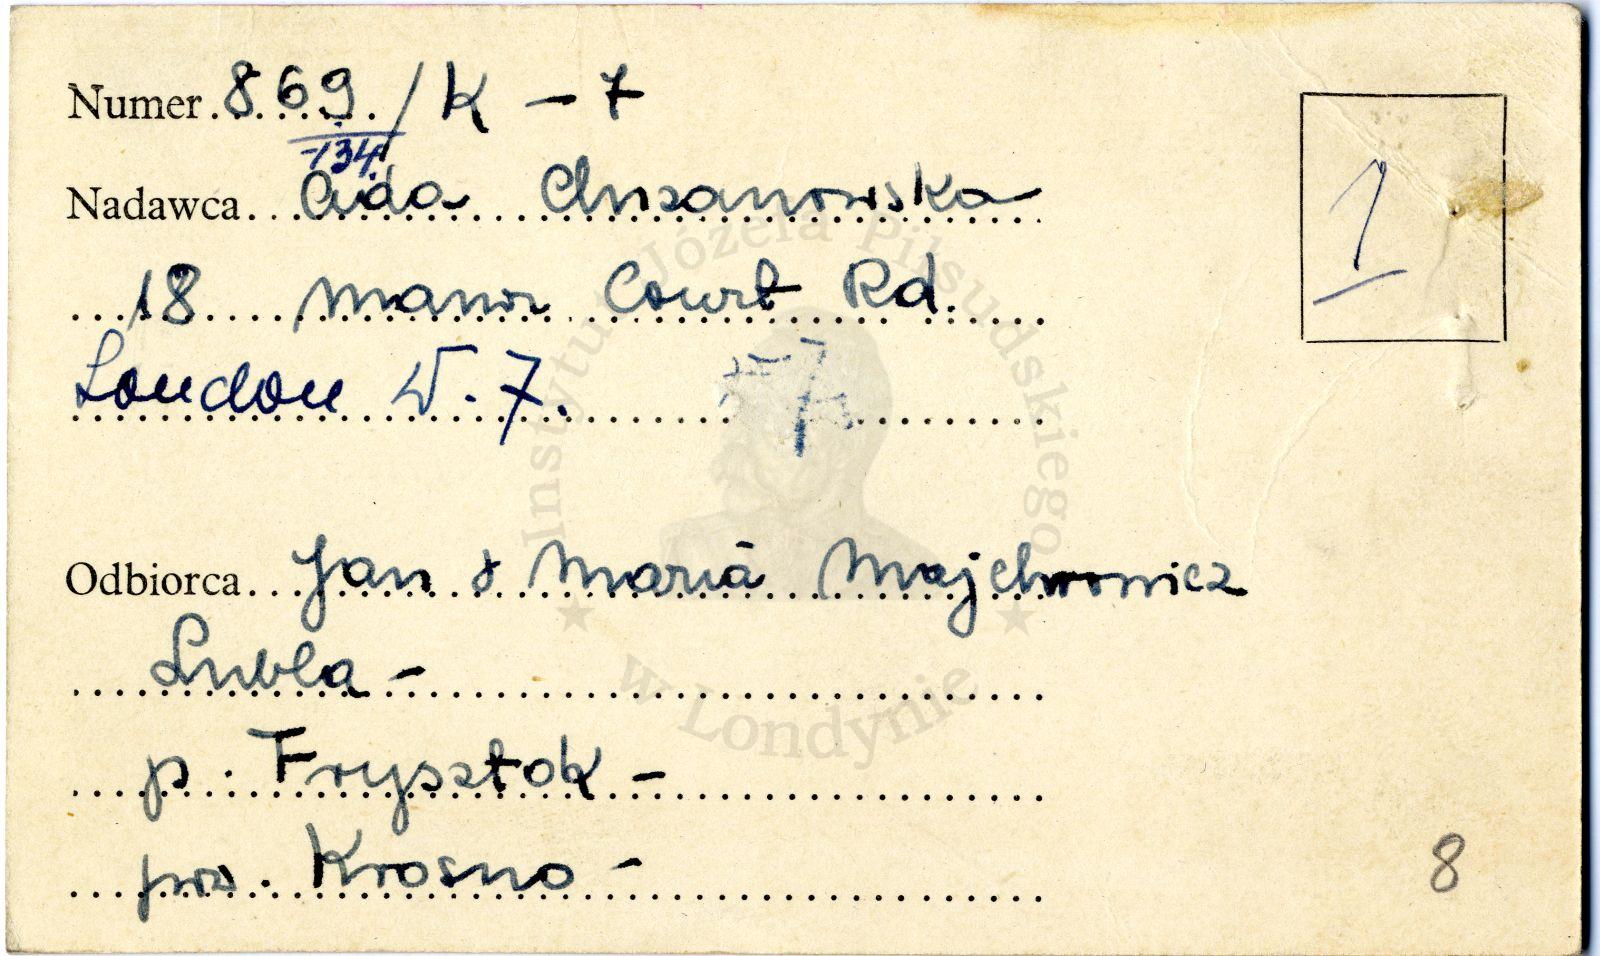 Numer 869 / K - 7
134
Nadawca Aida Chrzanowska
1
18 Manor Court Rd.
London W. 7.
Odbiorca Jan & Maria Majchrowicz
Lubla -
p. Frysztak -
pow. Krosno -
8
Instytut Józefa Piłsudskiego
w Londynie